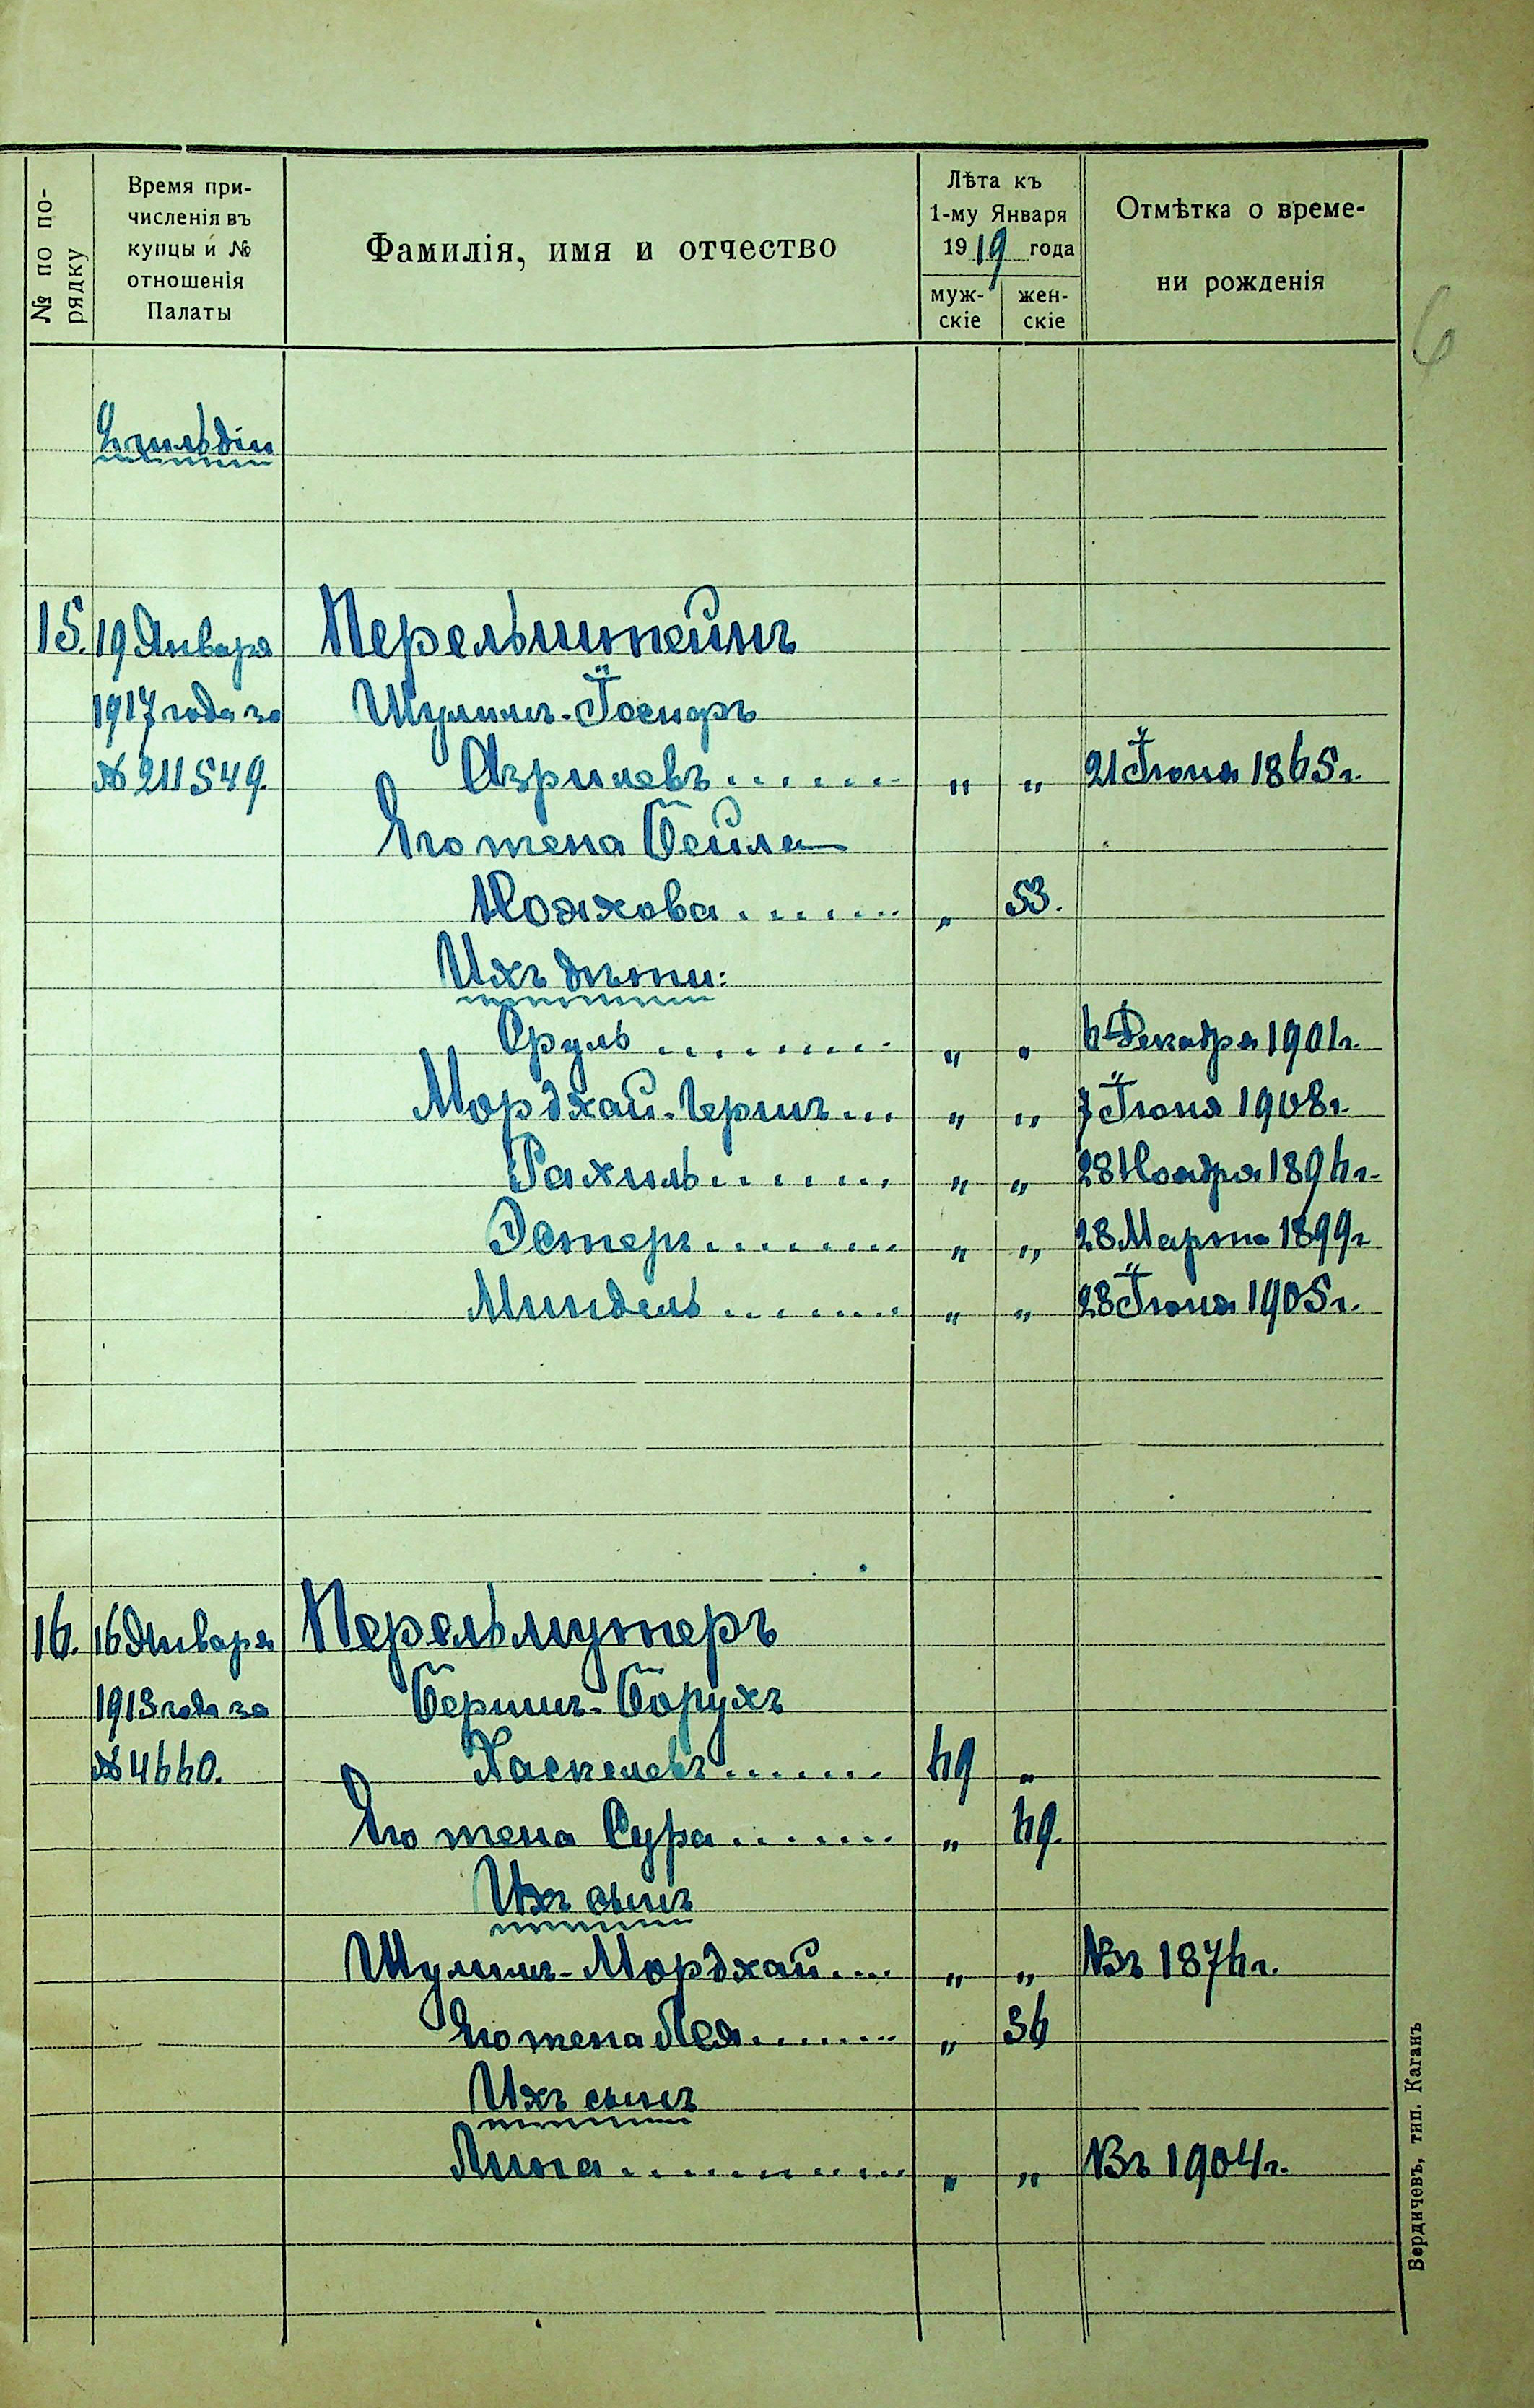 № по по-
рядку
Время при-
численія въ
купцы и №
отношенія
Палаты
Фамилія, имя и отчество
Лѣта къ
1-му Января
1919 года
муж-
скіе
жен-
скіе
Отмѣтка о време-
ни рожденія
6
2 гильдіи
15. 19 Января Перельштейнъ
1917 года за Шулимъ-Іосифъ
№ 211549. Азрилевъ...... " " 21 Іюня 1865 г.
Его жена Бейла
Нояхова....... " 53.
Ихъ дѣти:
Сруль......... " " 6 Декабря 1901 г.
Мордхай-Гершъ... " " 7 Іюня 1908 г.
Рахиль....... " " 28 Ноября 1896 г.
Эстеръ......... " " 28 Марта 1899 г
Миндель........ " " 28 Іюня 1905 г.
16. 16 Января Перельмутеръ
1913 года за Бершъ-Борухъ
№ 4660. Хаскелевъ....... 69 "
Его жена Сура....... " 69.
Ихъ сынъ
Шулимъ-Мордхай.... " " Въ 1876 г.
Его жена Лея........ " 36
Ихъ сынъ
Липа............ " " Въ 1904 г.
Бердичевъ, тип. Каганъ